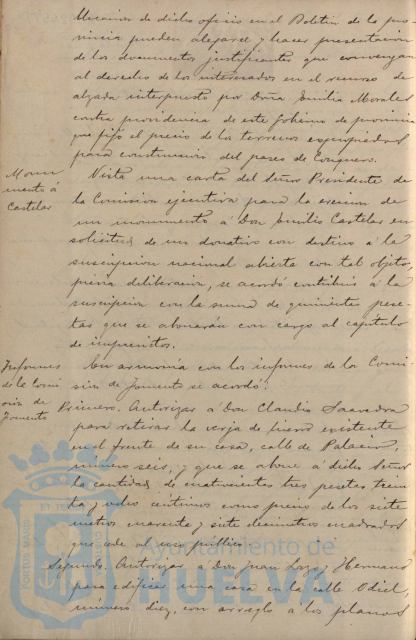 de dicho oficio en el Boletin de la pro
vincia pueden alegarse y hacer presentacion
de los documentos justificantes que convengan
al derecho de los interesados en el recurso de
alzada interpuesto por Doña Emilia Morales
contra providencia de este Gobierno de provincia
que fijó el precio de los terrenos expropiados
para construccion del paseo de Conquero.
Monu
mento á
Castelar
Vista una carta del Señor Presidente de
la Comision ejecutiva para la ereccion de
un monumento á Don Emilio Castelar en
solicitud de un donativo con destino á la
suscripcion nacional abierta con tal objeto,
previa deliberacion, se acordó contribuir á la
suscripcion con la suma de quinientas pese-
tas que se abonarán con cargo al capitulo
de imprevistos.
Informes
de la Comi
sion de
Fomento
En armonía con los informes de la Comi-
sion de Fomento se acordó:
Primero. Autorizar á Don Claudio Saavedra
para retirar la verja de hierro existente
en el frente de su casa, calle de Palacio,
número seis, y que se abone á dicho Señor
la cantidad de cuatrocientas tres pesetas trein
ta y ocho centimos como precio de los siete
metros cuarenta y siete decimetros cuadrados
que cede al uso público.
Segundo. Autorizar a Don Juan Hermanos
para edificar una casa en la calle Odiel,
número diez, con arreglo a los planos
Ayuntamiento de
HUELVA
PORTUS MARIS
ET TERRAE